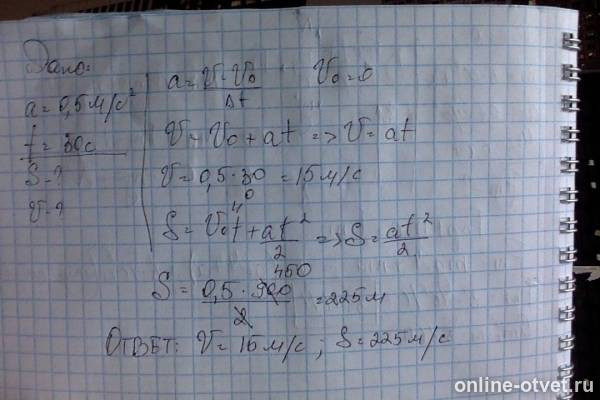 Дано:
a = 0,5 м/с²
t = 30с
S - ?
V - ?
a = V - V₀ / Δt    V₀ = 0
V = V₀ + at => V = at
V = 0,5 · 30 = 15 м/с
0
S = V₀t + at²/2 => S = at²/2
450
S = 0,5 · 900 / 2 = 225 м
ОТВЕТ: V = 15 м/с ; S = 225 м/с
online-otvet.ru